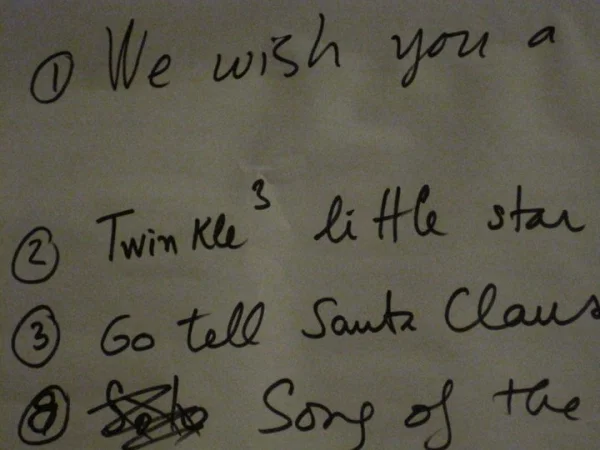 ① We wish you a
② Twinkle³ little star
③ Go tell Santa Claus
④ Song of the